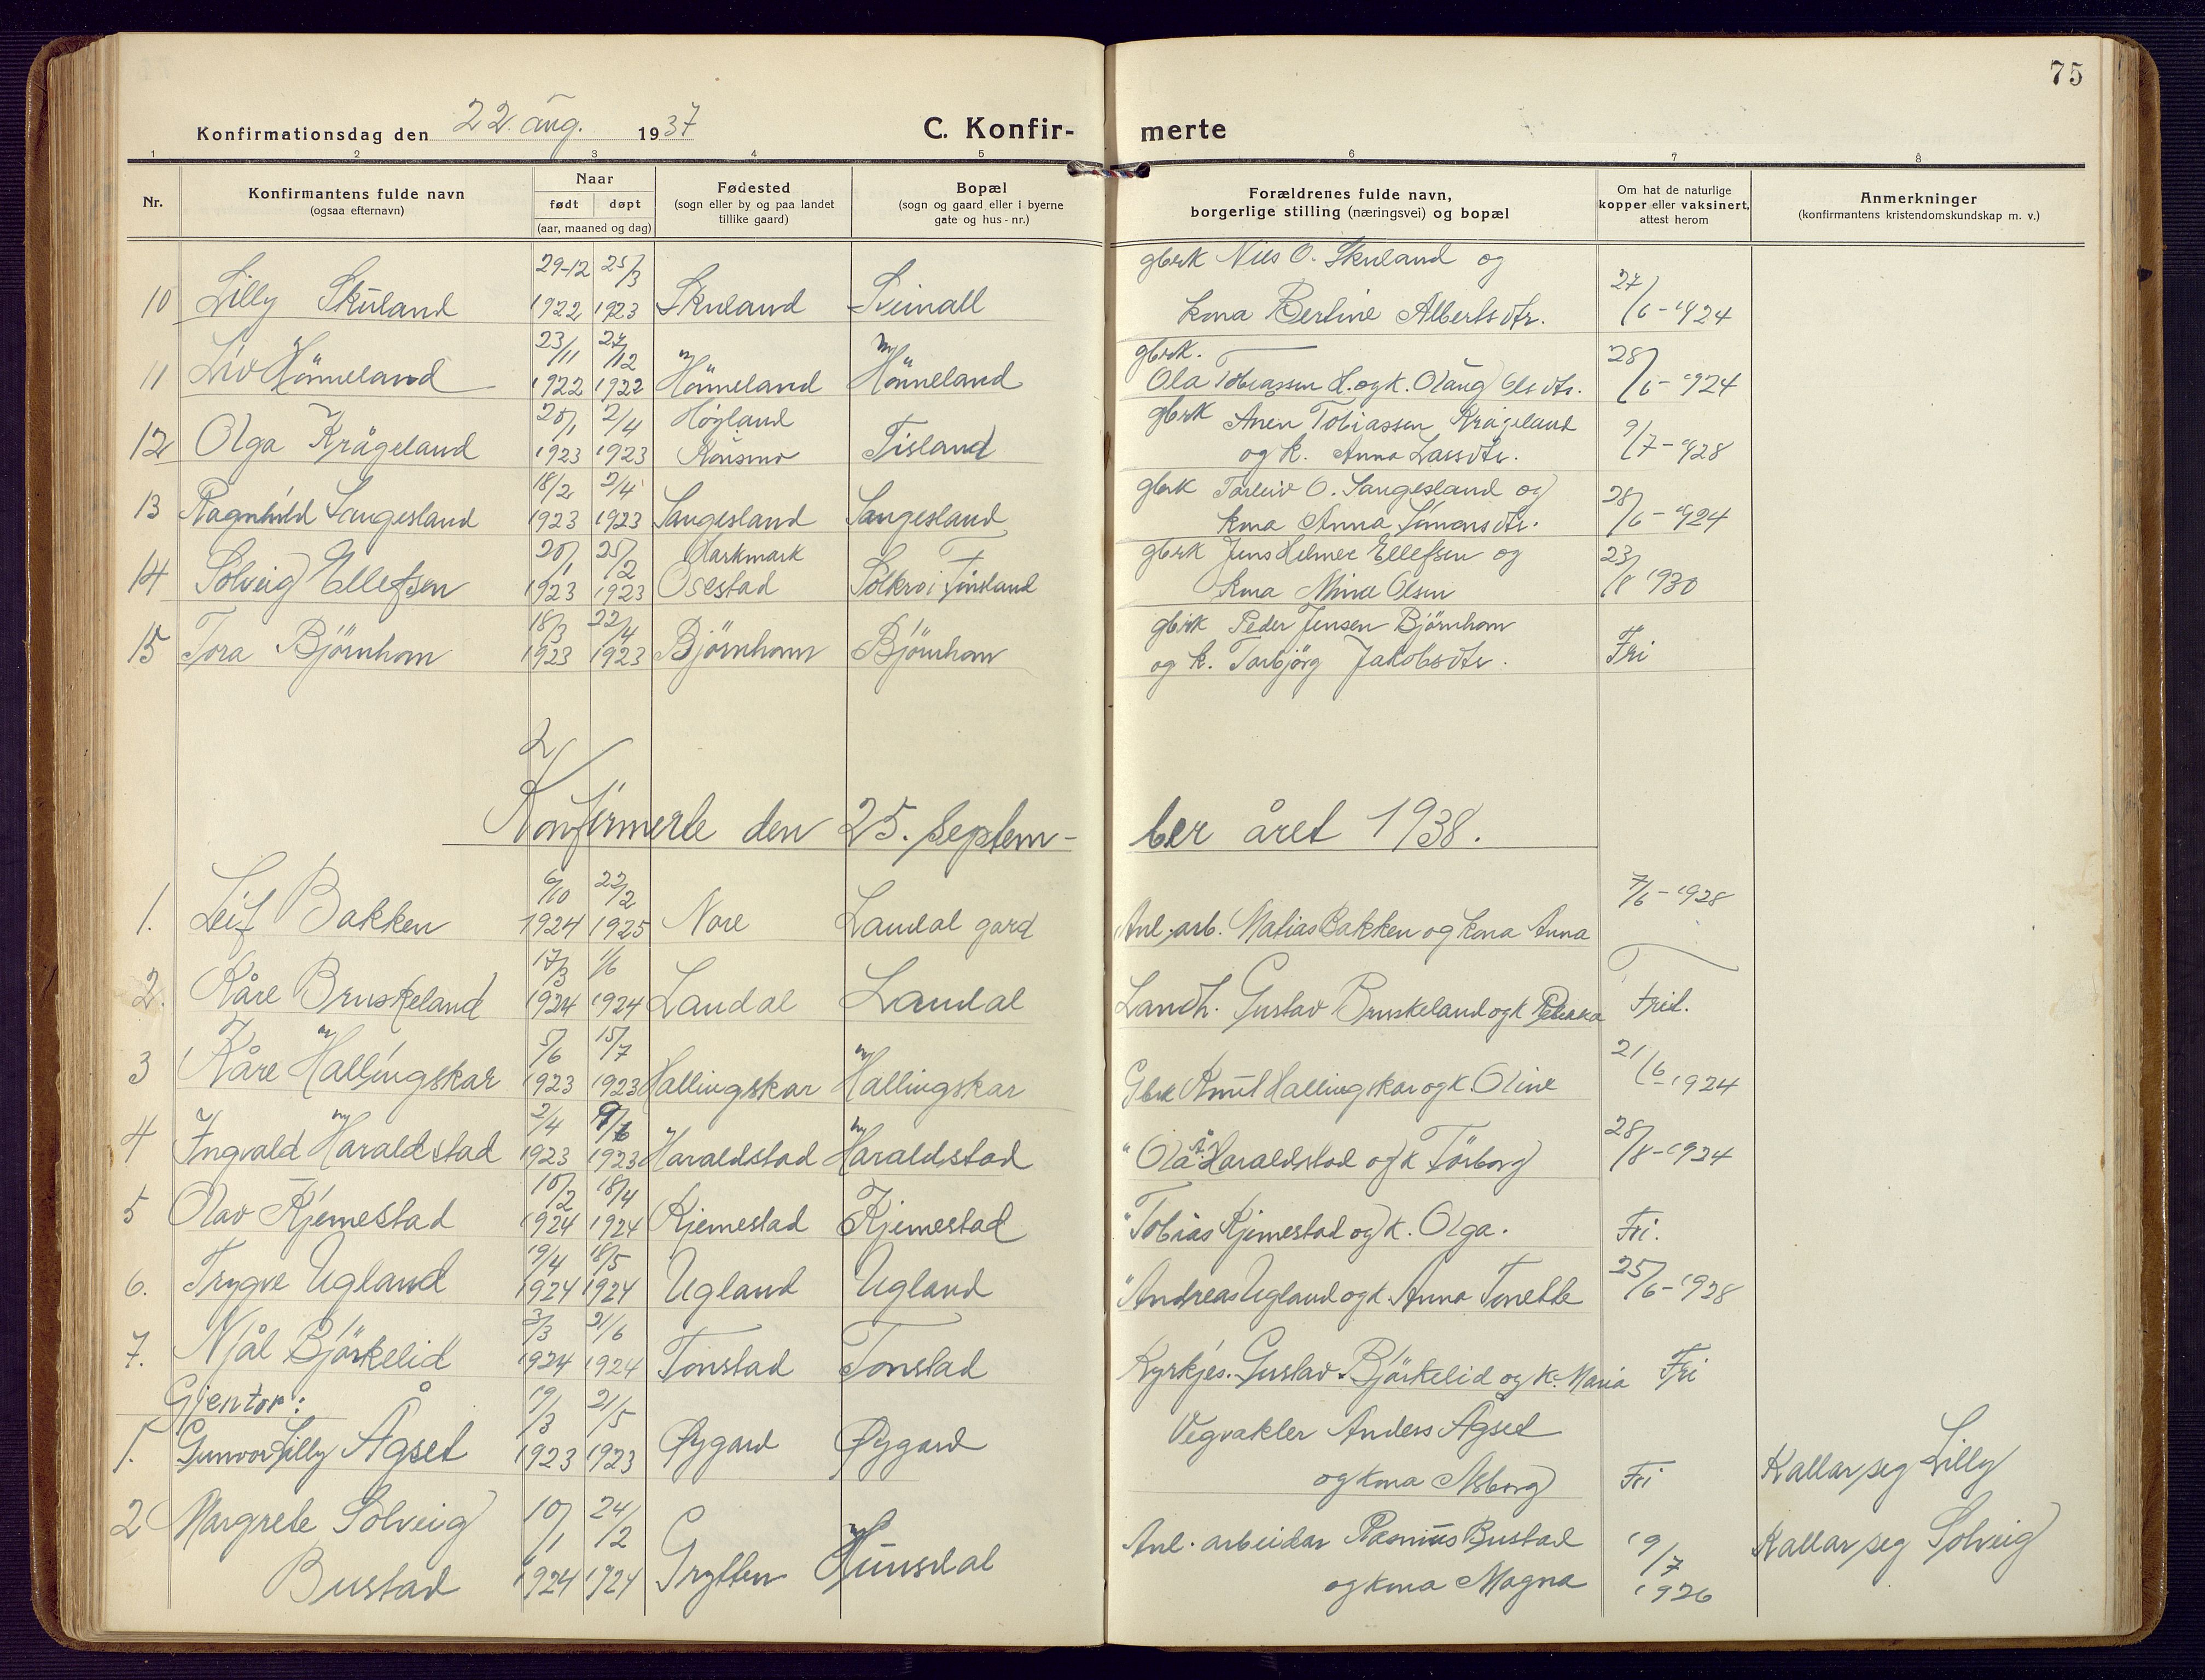 75
Konfirmationsdag den 22. aug. 1937 C. Konfirmerte
1 2 3 4 5 6 7 8
Nr.
Konfirmantens fulde navn
(ogsaa efternavn)
Naar
født døpt
(aar, maaned og dag)
Fødested
(sogn eller by og paa landet
tillike gaard)
Bopæl
(sogn og gaard eller i byerne
gate og hus-nr.)
Forældrenes fulde navn,
borgerlige stilling (næringsvei) og bopæl
Om hat de naturlige
kopper eller vaksinert,
attest herom
Anmerkninger
(konfirmantens kristendomskundskap m. v.)
29-12 25/3 gbrk Nils O. Skuland og 27/6-1924
10 Lilly Skuland 1922 1923 Skuland Sveinall kona Berline Albertsdtr.
23/11 27/12 gbrk. 28/6-1924
11 Liv Hönneland 1922 1922 Hönneland Hönneland Ola Tobiassen H. og k. Olaug Olsdtr.
20/1 2/4 Høgland gbrk Anen Tobiassen Krågeland 9/7-1928
12 Olga Krågeland 1923 1923 Konsmo Tisland og k. Anna Larsdtr.
18/2 2/4 gbrk Torleiv O. Sangesland og 28/6-1924
13 Ragnhild Sangesland 1923 1923 Sangesland Sangesland kona Anna Simonsdtr.
20/1 25/2 Harkmark gbrk Jens Helmer Ellefsen og 23/8 1930
14 Solveig Ellefsen 1923 1923 Osestad Solkro i Finsland kona Mina Olsen
18/3 22/4 gbrk Peder Jensen Björnhom
15 Tora Björnhom 1923 1923 Björnhom Björnhom og k. Torbjörg Jakobsdtr. Fri
2/
Konfirmerte den 25. september året 1938.
6/10 22/2 7/6-1928
1. Leif Bakken 1924 1925 Nore Laudal gard Anl. arb. Matias Bakken og kona Anna
17/3 1/6
2. Kåre Bruskeland 1924 1924 Laudal Laudal Landh. Gustav Bruskeland og k Rebekka Frit.
5/6 15/7 21/6-1924
3 Kåre Hallingskar 1923 1923 Hallingskar Hallingskar Gbrk Knut Hallingskar og k. Oline
2/4 28/8-1924
4 Ingvald Haraldstad 1923 1923 Haraldstad Haraldstad " Ola Haraldstad og k Torborg
10/2 18/4
5 Olav Kjemestad 1924 1924 Kjemestad Kjemestad " Tobias Kjemestad og k. Olga. Fri.
19/4 18/5 25/6-1928
6. Trygve Ugland 1924 1924 Ugland Ugland " Andreas Ugland og k. Anna Tonette
3/3 21/6
7. Njål Björkelid 1924 1924 Tonstad Tonstad Kyrkjes. Gustav Björkelid og k. Maria Fri
Gjentor:
19/3 21/5 Vegvakter Anders Ågset
1. Gunvor Lilly Ågset 1923 1923 Øygard Øygard og kona Asborg Fri Kallar seg Lilly
2 Margrete Solveig 10/1 24/2 Anl. arbeidar Rasmus Bustad 19/7 Kallar seg Solveig
Bustad 1924 1924 Grytten Hunsdal og kona Magna 1926